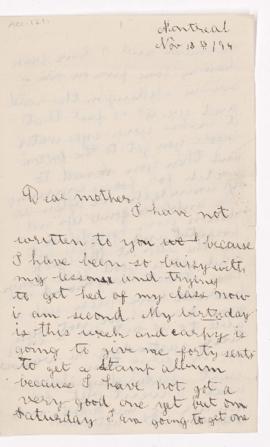 Montreal
Nov 13th/94
Dear mother
I have not
written to you because
I have been so buisy with
my lessons and trying
to get hed of my class now
i am second My birthday
is this week and
going to give me forty sents
to get a stamp album
because I have not got a
very good one yet but on
Saturday I am going to get one